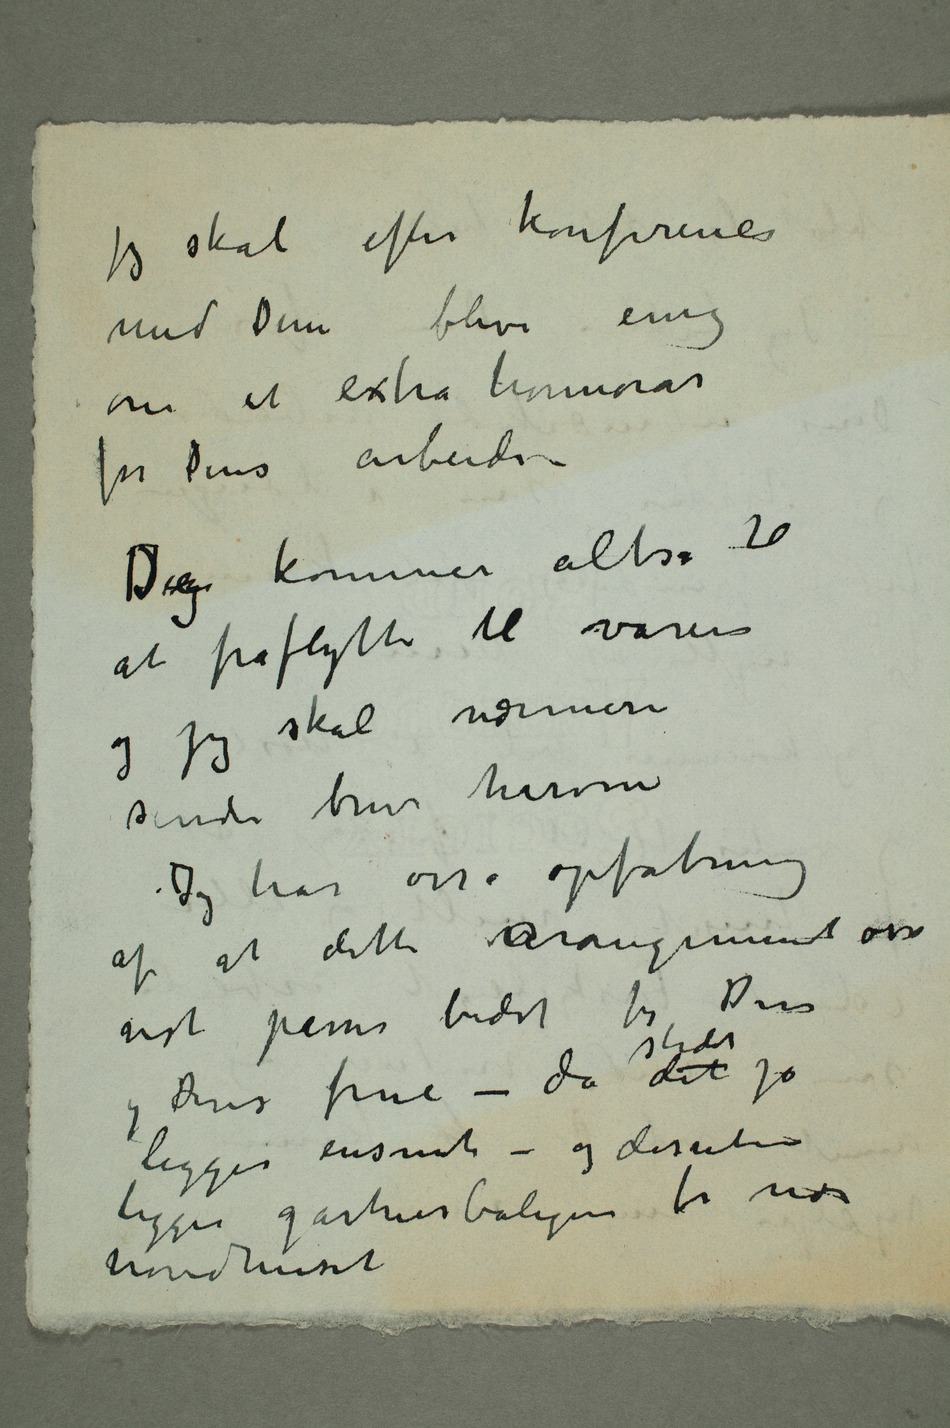 Jeg skal efter konference
med Dem blive enig
om et extra honnorar
for Deres arbeide –
De kommer altså til
at fraflytte til våren
og jeg skal nærmere
sende brev herom
Jeg har også opfatning
af at dette arangement også
vist passer bedst for Dem
og Deres frue – da det stedet jo
ligger ensomt – og desuten
ligger gartnerboligen for nær
hovedhuset